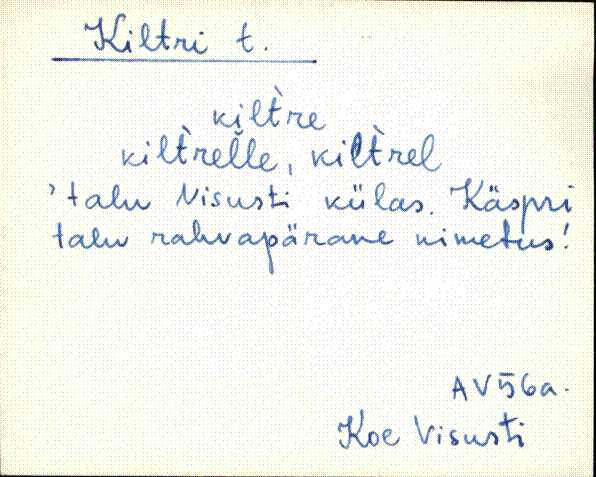 Kiltri t.
kilt̀re
kilt̀relle, kilt̀rel
'talu Visusti külas. Käspri
talu rahvapärane nimetus'.
AV56a.
Koe Visusti